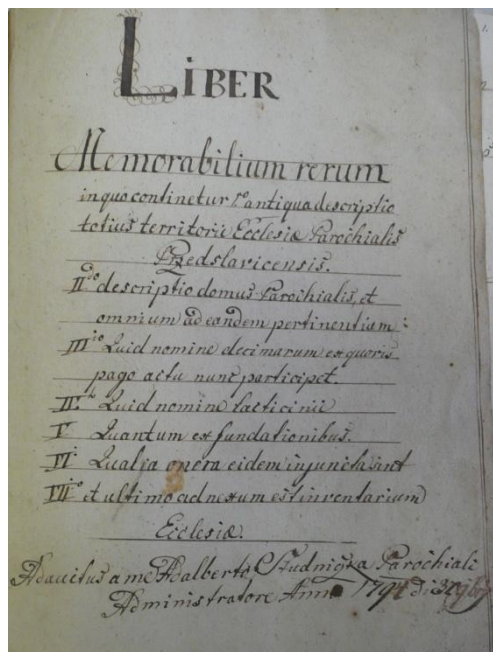 LIBER
Memorabilium rerum
in quo continetur 1º antiqua descriptio
totius territorii Ecclesiæ Parochialis
Przedslavicensis.
IIdo descriptio domus Parochialis, et
omnium ad eandem pertinentium:
IIIio Quid nomine decimarum ex quovis
pago actu nunc participet.
IV.to Quid nomine lacticinii
V Quantum ex fundationibus.
VI: Qualia opera eidem injuncta sint
VII:o et ultimo adnexum est inventarium
Ecclesiæ.
Adauctus a me Adalberto Studnička Parochiali
Administratore Anno 1794 Di 3